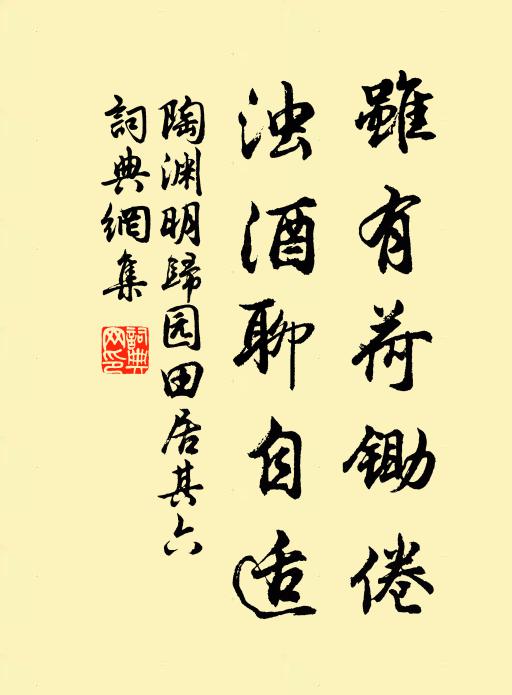 雖有荷鋤倦
浊酒聊自适
陶渊明歸园田居其六
詞典網集
詞典
网印